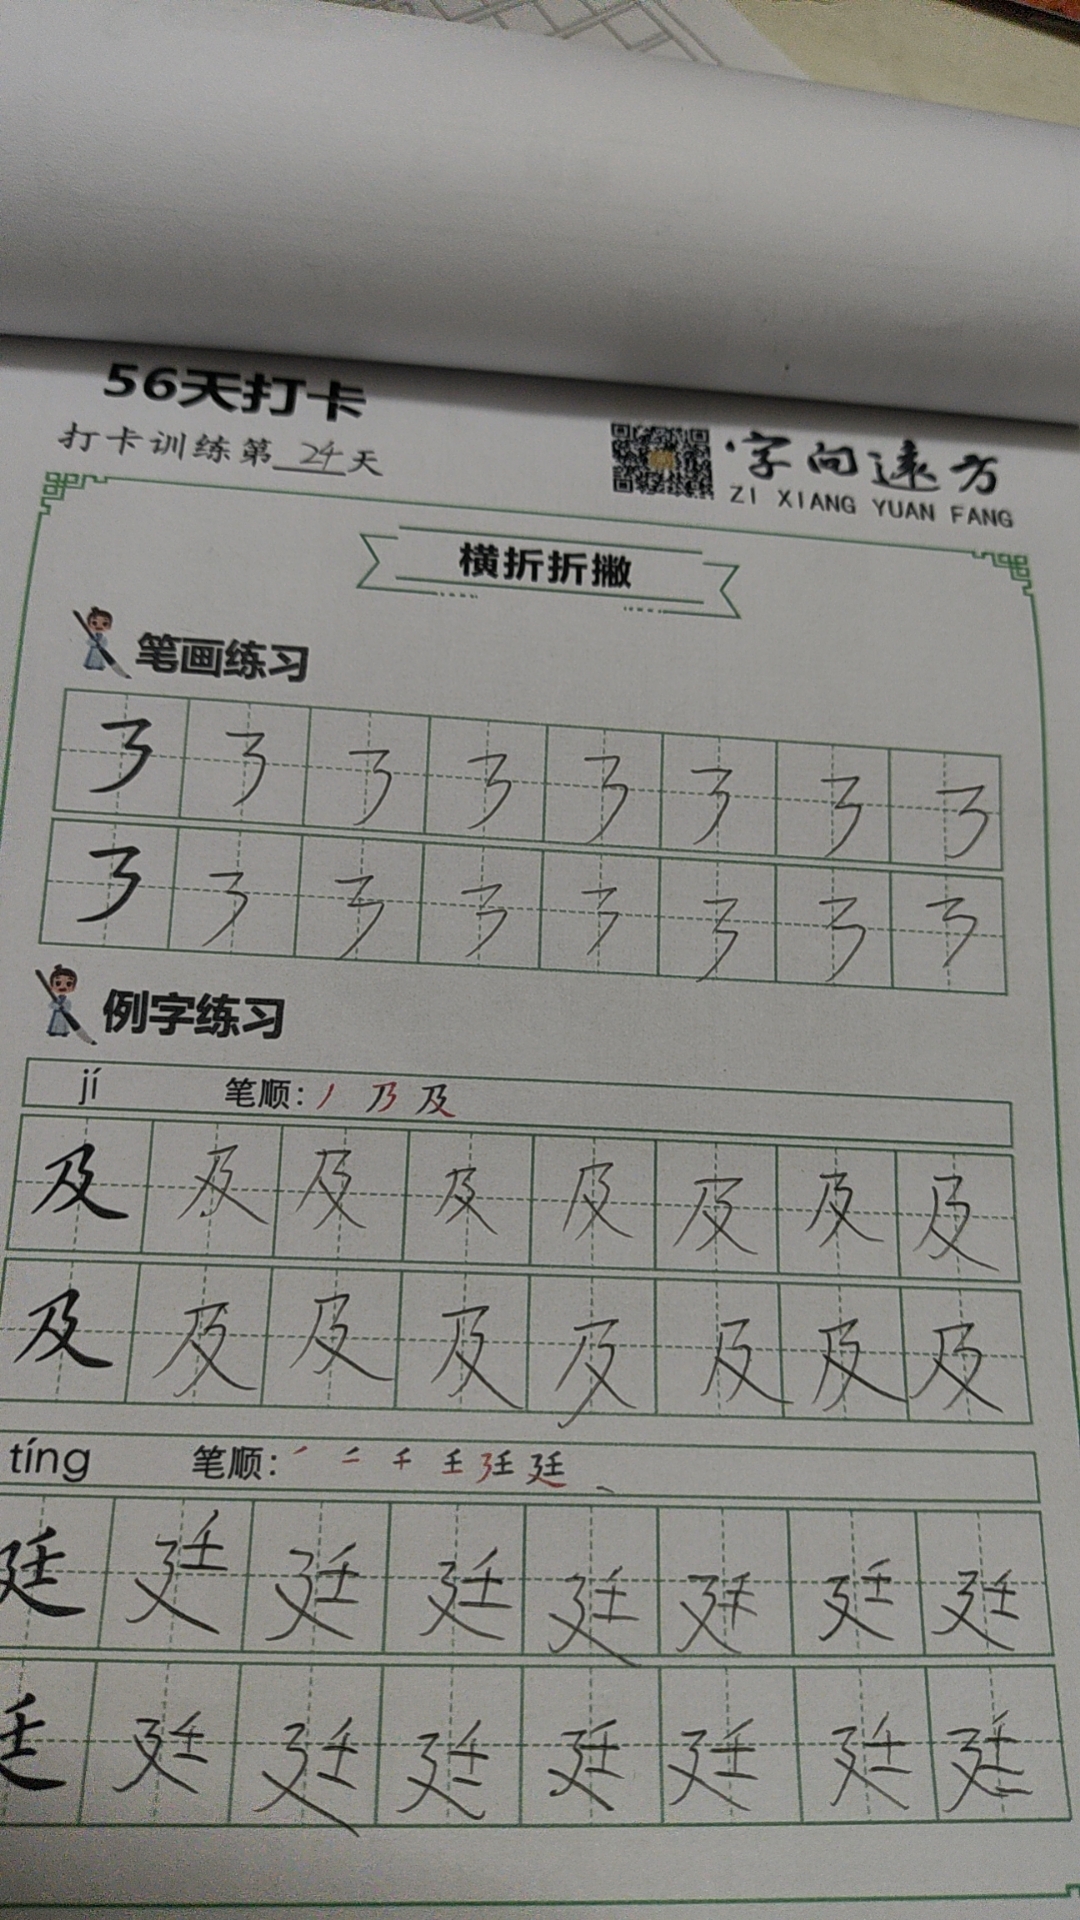 56天打卡
打卡训练第24天
字向远方
ZI XIANG YUAN FANG
横折折撇
笔画练习
㇋ ㇋ ㇋ ㇋ ㇋ ㇋ ㇋ ㇋
㇋ ㇋ ㇋ ㇋ ㇋ ㇋ ㇋ ㇋
例字练习
jí 笔顺: 丿 乃 及
及 及 及 及 及 及 及 及
及 及 及 及 及 及 及 及
tíng 笔顺:
廷 廷 廷 廷 廷 廷 廷 廷
廷 廷 廷 廷 廷 廷 廷 廷